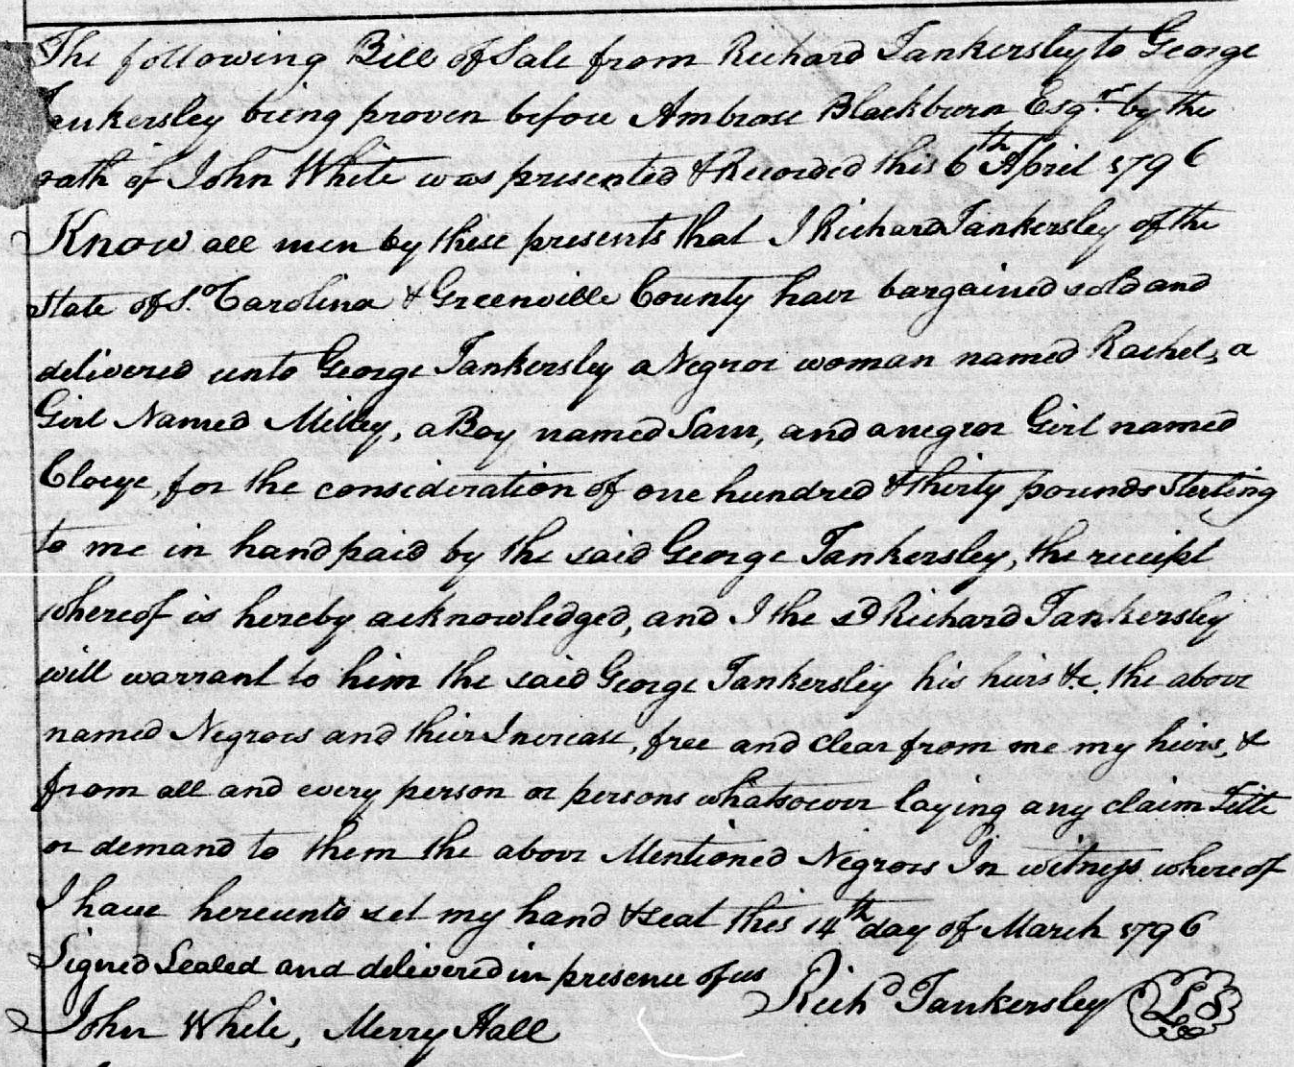 The following Bill of Sale from Richard Tankersley to George
Tankersley being proven before Ambrose Blackburn Esqr. by the
oath of John White was presented & Recorded this 6th April 1796
Know all men by these presents that I Richard Tankersley of the
State of S. Carolina & Greenville County have bargained sold and
delivered unto George Tankersley a Negroe woman named Rachel, a
Girl Named Milley, a Boy named Sam, and a negroe Girl named
Cloeye, for the consideration of one hundred & thirty pounds Sterling
to me in hand paid by the said George Tankersley, the receipt
whereof is hereby acknowledged, and I the sd Richard Tankersley
will warrant to him the said George Tankersley his heirs &c. the above
named Negroes and their Increase, free and clear from me my heirs, &
from all and every person or persons whatsoever laying any claim Title
or demand to them the above Mentioned Negroes In witness whereof
I have hereunto set my hand & seal this 14th day of March 1796
Signed Sealed and delivered in presence of us
Richd Tankersley LS
John White, Merry Hall